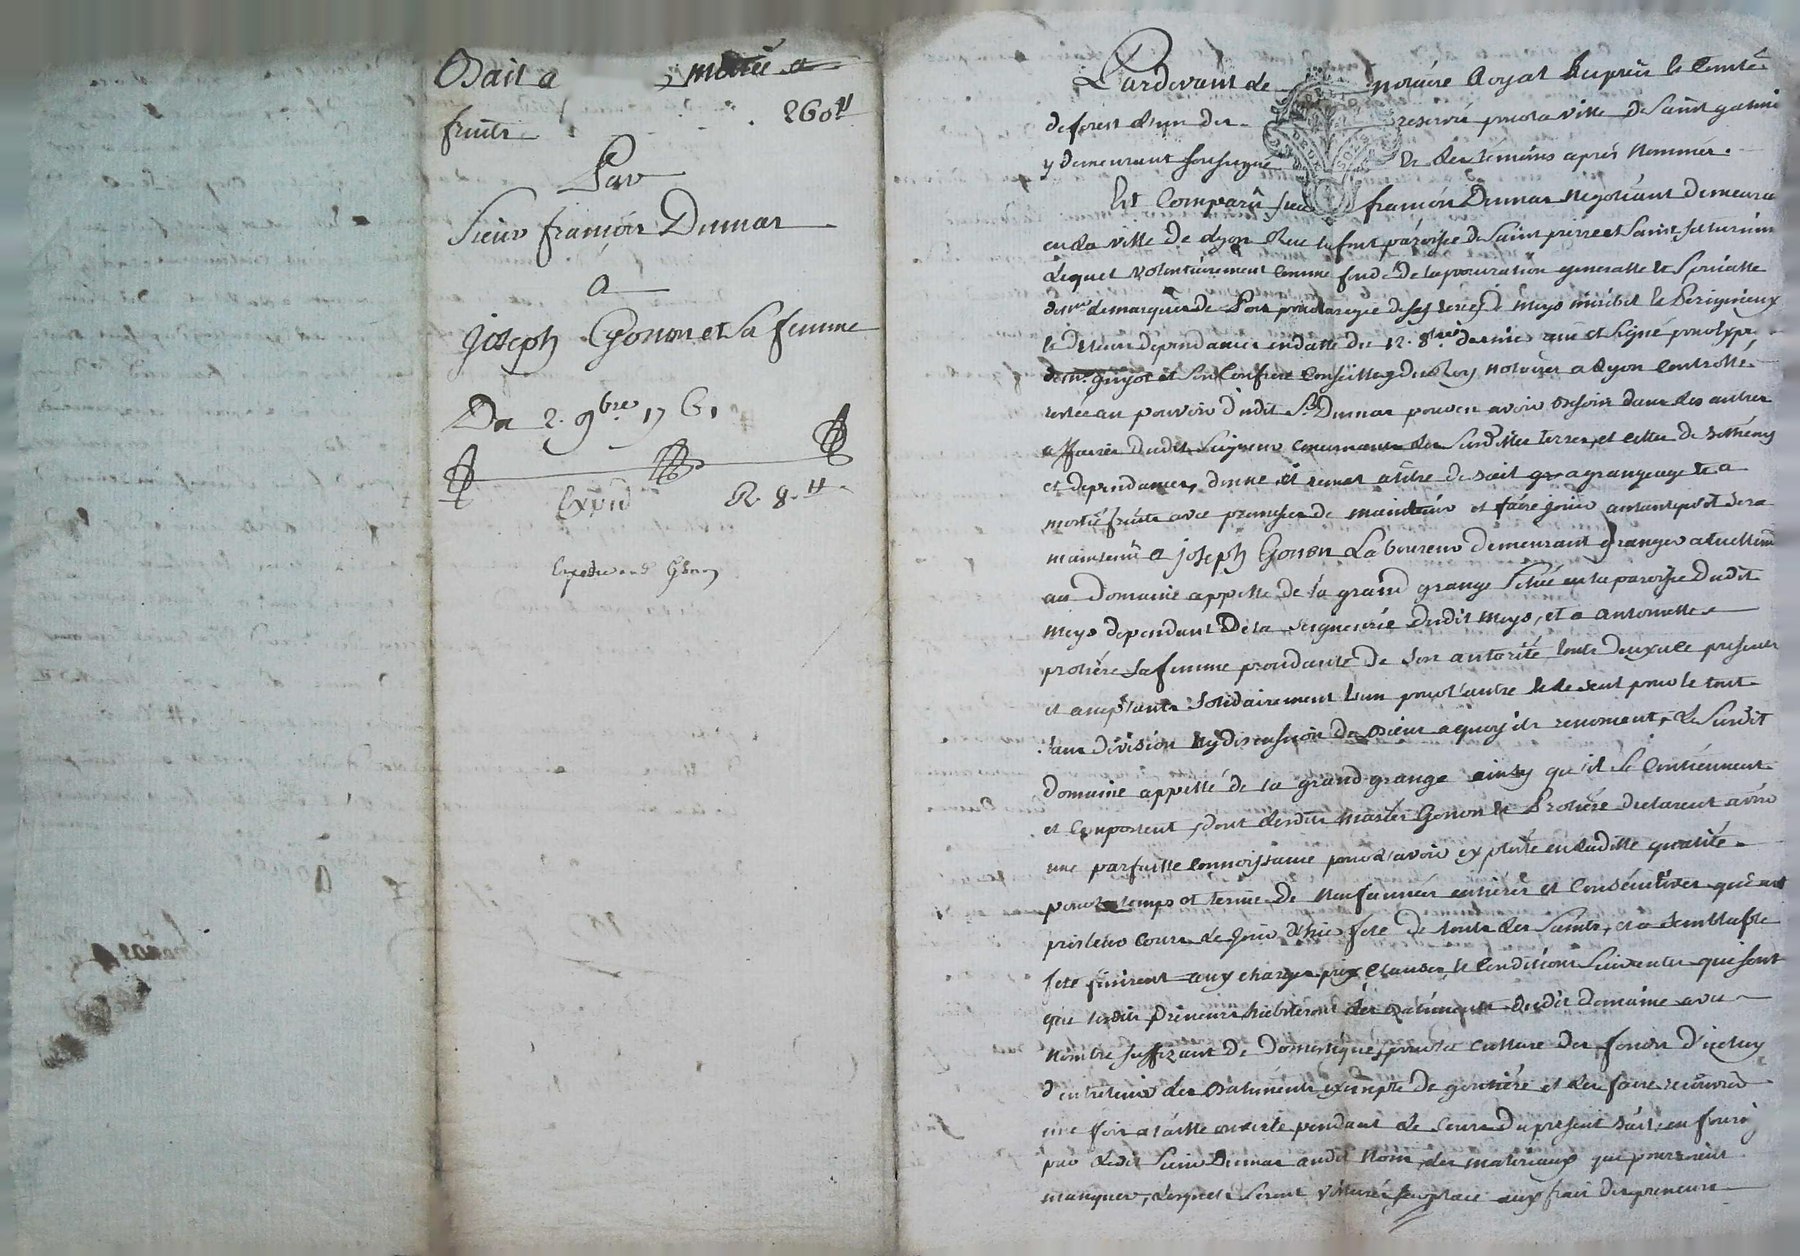 Bail a moitié a
fruits 260
Par
Sieur françois Dumas
a
Joseph Gonon et sa femme
Du 2. 9bre 1761
Expié R. 8.
Expedié Gonon
Pardevant le notaire Royal au pays le Comté
de forest l'un des reservé pour la ville de Saint galmi
y demeurant soussigné et les témoins aprés Nommes.
Est Comparû sieur françois Dumas negotiant demeurant
en la ville de Lyon Rue paroisse de Saint pierre et Saint saturnin
Lequel volontairement comme fondé de la procuration generalle et specialle
de marquis de pour la regie de ses terres de meys
dependances en datte du 12. 8bre dernier qui est signé
guyot et son Confrere Conseillers du Roy Notaires a Lyon Controllé
restée au pouvoir dudit Sr. Dumas pour en avoir besoin dans les autres
affaires dudit Seigneur concernants les susdittes terres, et celle de
et dependances, donne et remet a titre de bail a grangeage et a
moitié fruits avec promesse de maintenir et faire jouir autant qu'il sera
maintenû a joseph Gonon Laboureur demeurant granger actuellement
au Domaine appellé de la grand grange Situé en la paroisse dudit
meys dependant de la seigneurie dudit meys, et a antoinette
protiére sa femme procedante de son autorité tous deux icy presents
et acceptants solidairement l'un pour l'autre et le seul pour le tout
sans division ny discussion de biens a quoy ils renoncent, le Susdit
domaine appellé de la grand grange ainsy qu'il se Contiennent
et Comportent, dont lesdits mariés Gonon et Protiére declarent avoir
une parfaitte connoissance pour l'avoir exploité en laditte qualité
pour le temps et terme de Neuf années entiéres et consécutives qui ont
pris leur cours le jour d'hier fete de touts les Saints, et a semblable
fete finiront aux charges prix Clauses et Conditions suivantes qui sont
que lesdits preneurs habiteront les batiments dudit domaine avec
nombre suffizant de Domestiques pour la culture des fonds d'iceluy
d'entretenir les batiments exempts de goutiére et les faire recouvrir
une fois a taille ouverte pendant le Cours du present bail, en fourni
par ledit Sieur Dumas audit Nom les materiaux qui pourroient
manquer, lesquels seront voiturés sur place aux frais des preneurs